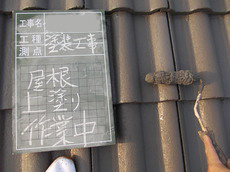 工事名
工種 塗装工事
測点
屋根
上塗り
作業中